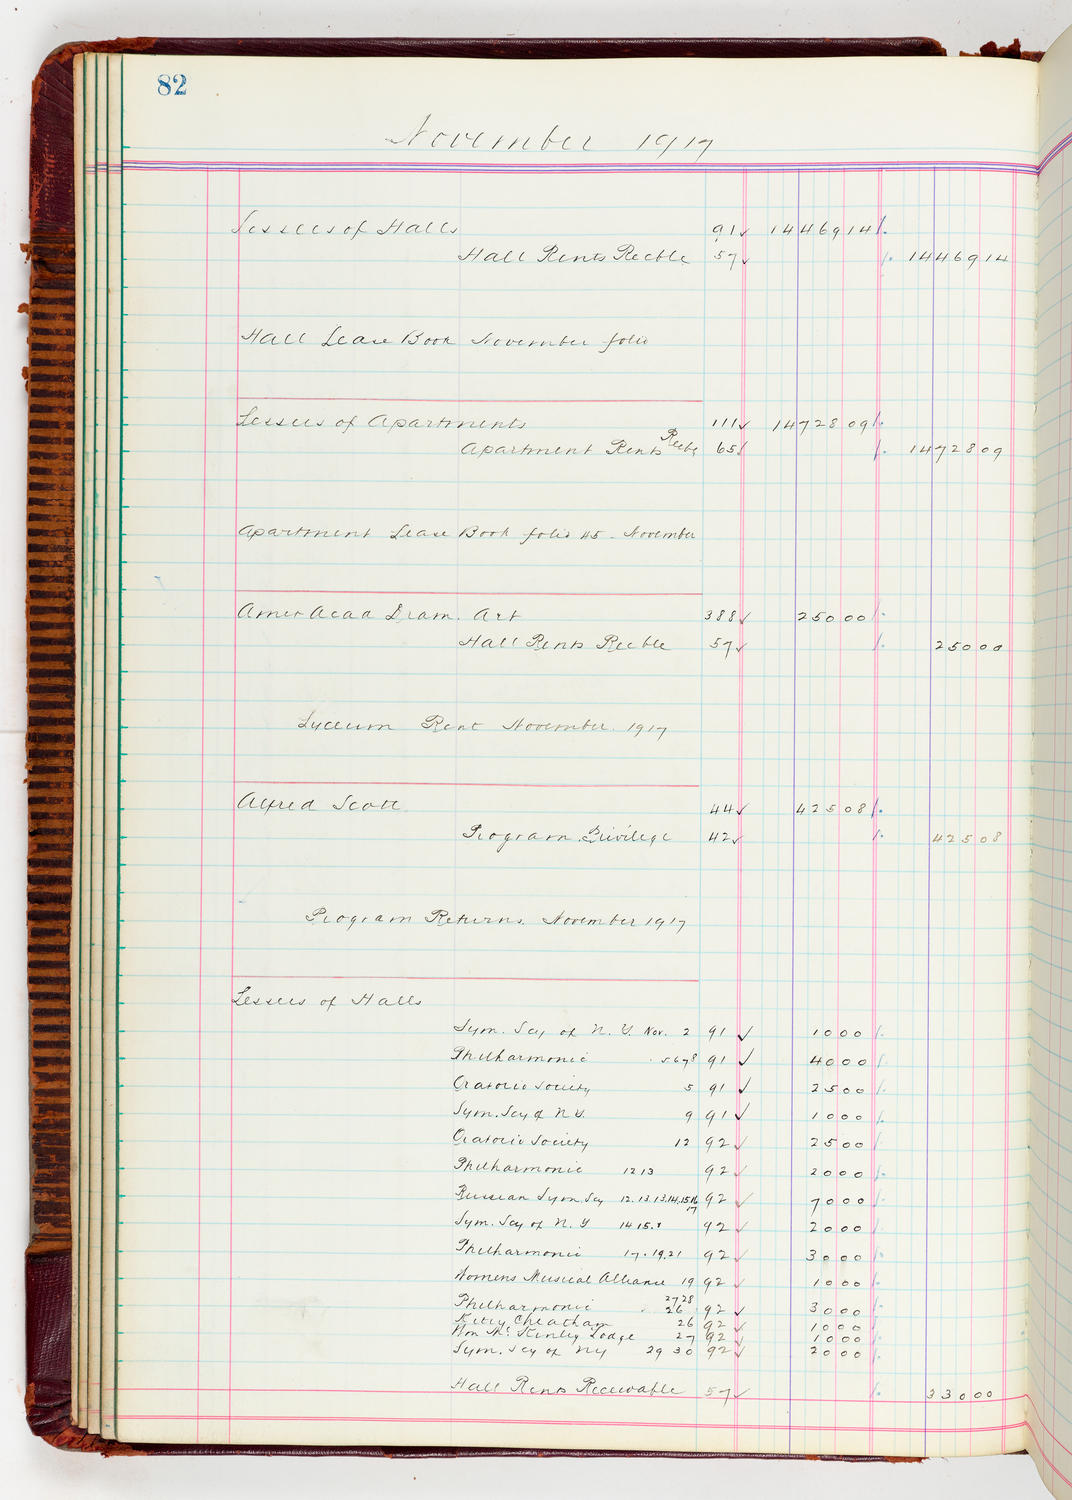 82
November 1917
Lessees of Halls 91 ✓ 14469 14
Hall Rents Recble 57 ✓ 14469 14
Hall Lease Book November folio
Lessees of Apartments 111 ✓ 14728 09
Apartment Rents Recble 65 ✓ 14728 09
Apartment Lease Book folio 45 - November
Amer Acad Dram. Art 388 ✓ 250 00
Hall Rents Recble 57 ✓ 250 00
Lyceum Rent November 1917
Alfred Scott 44 ✓ 425 08
Program Privilege 42 ✓ 425 08
Program Returns. November 1917
Lessees of Halls
Sym. Socy of N. Y. Nov. 2 91 ✓ 10 00
Philharmonic 5 6 7 8 91 ✓ 40 00
Oratorio Society 5 91 ✓ 25 00
Sym. Socy of N Y. 9 91 ✓ 10 00
Oratorio Society 12 92 ✓ 25 00
Philharmonic 12 13 92 ✓ 20 00
Russian Sym. Soy 12. 13. 13. 14. 15 16 17 92 ✓ 70 00
Sym. Socy of N. Y 14 15. 92 ✓ 20 00
Philharmonic 17. 19. 21 92 ✓ 30 00
Womens Musical Alliance 19 92 ✓ 10 00
Philharmonic 26 27 28 92 ✓ 30 00
Kitty Cheatham 26 92 ✓ 10 00
Wm Mc Kinley Lodge 27 92 ✓ 10 00
Sym. Socy of NY 29 30 92 ✓ 20 00
Hall Rents Receivable 57 ✓ 330 00